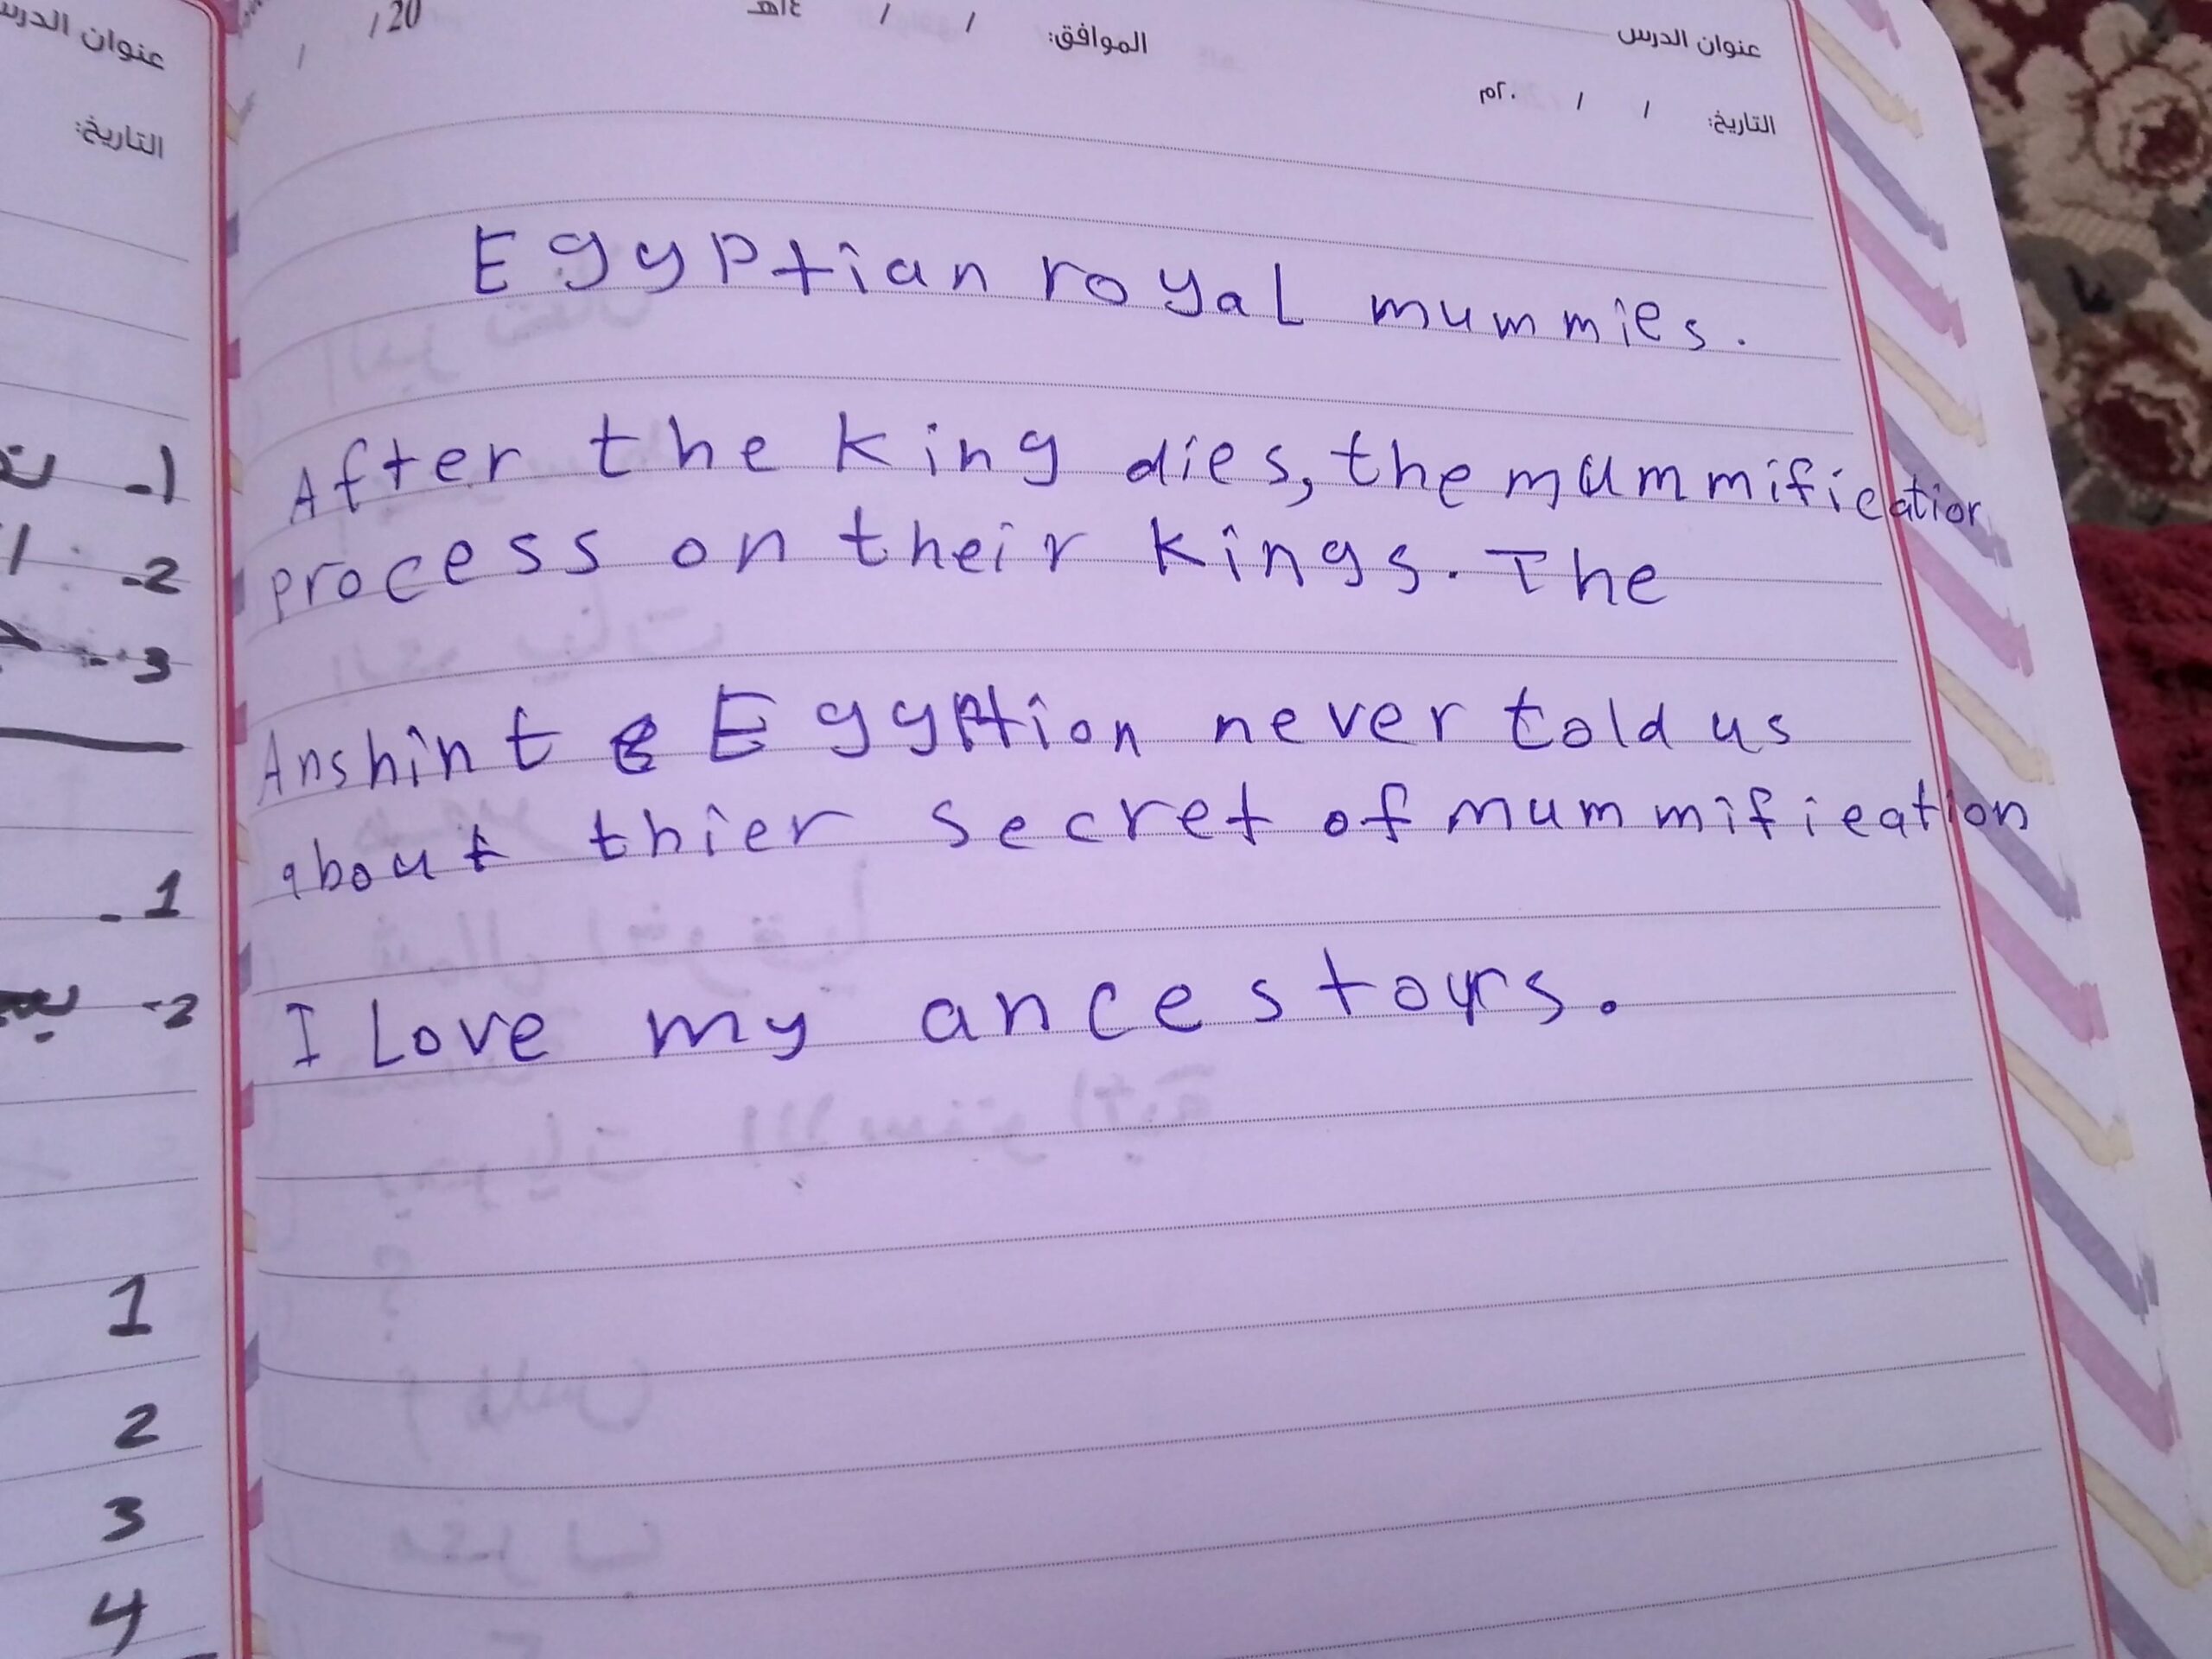 عنوان الدرس
الموافق: / / ١٤هـ
/ 20
/
التاريخ: / / ٢٠م
Egyptian royal mummies.
After the king dies, the mummification
process on their kings. The
Anshint Egyption never told us
about thier secret of mummifieation
I Love my ancestors.
عنوان الدرس
التاريخ:
1-
2-
3-
1-
2-
1
2
3
4